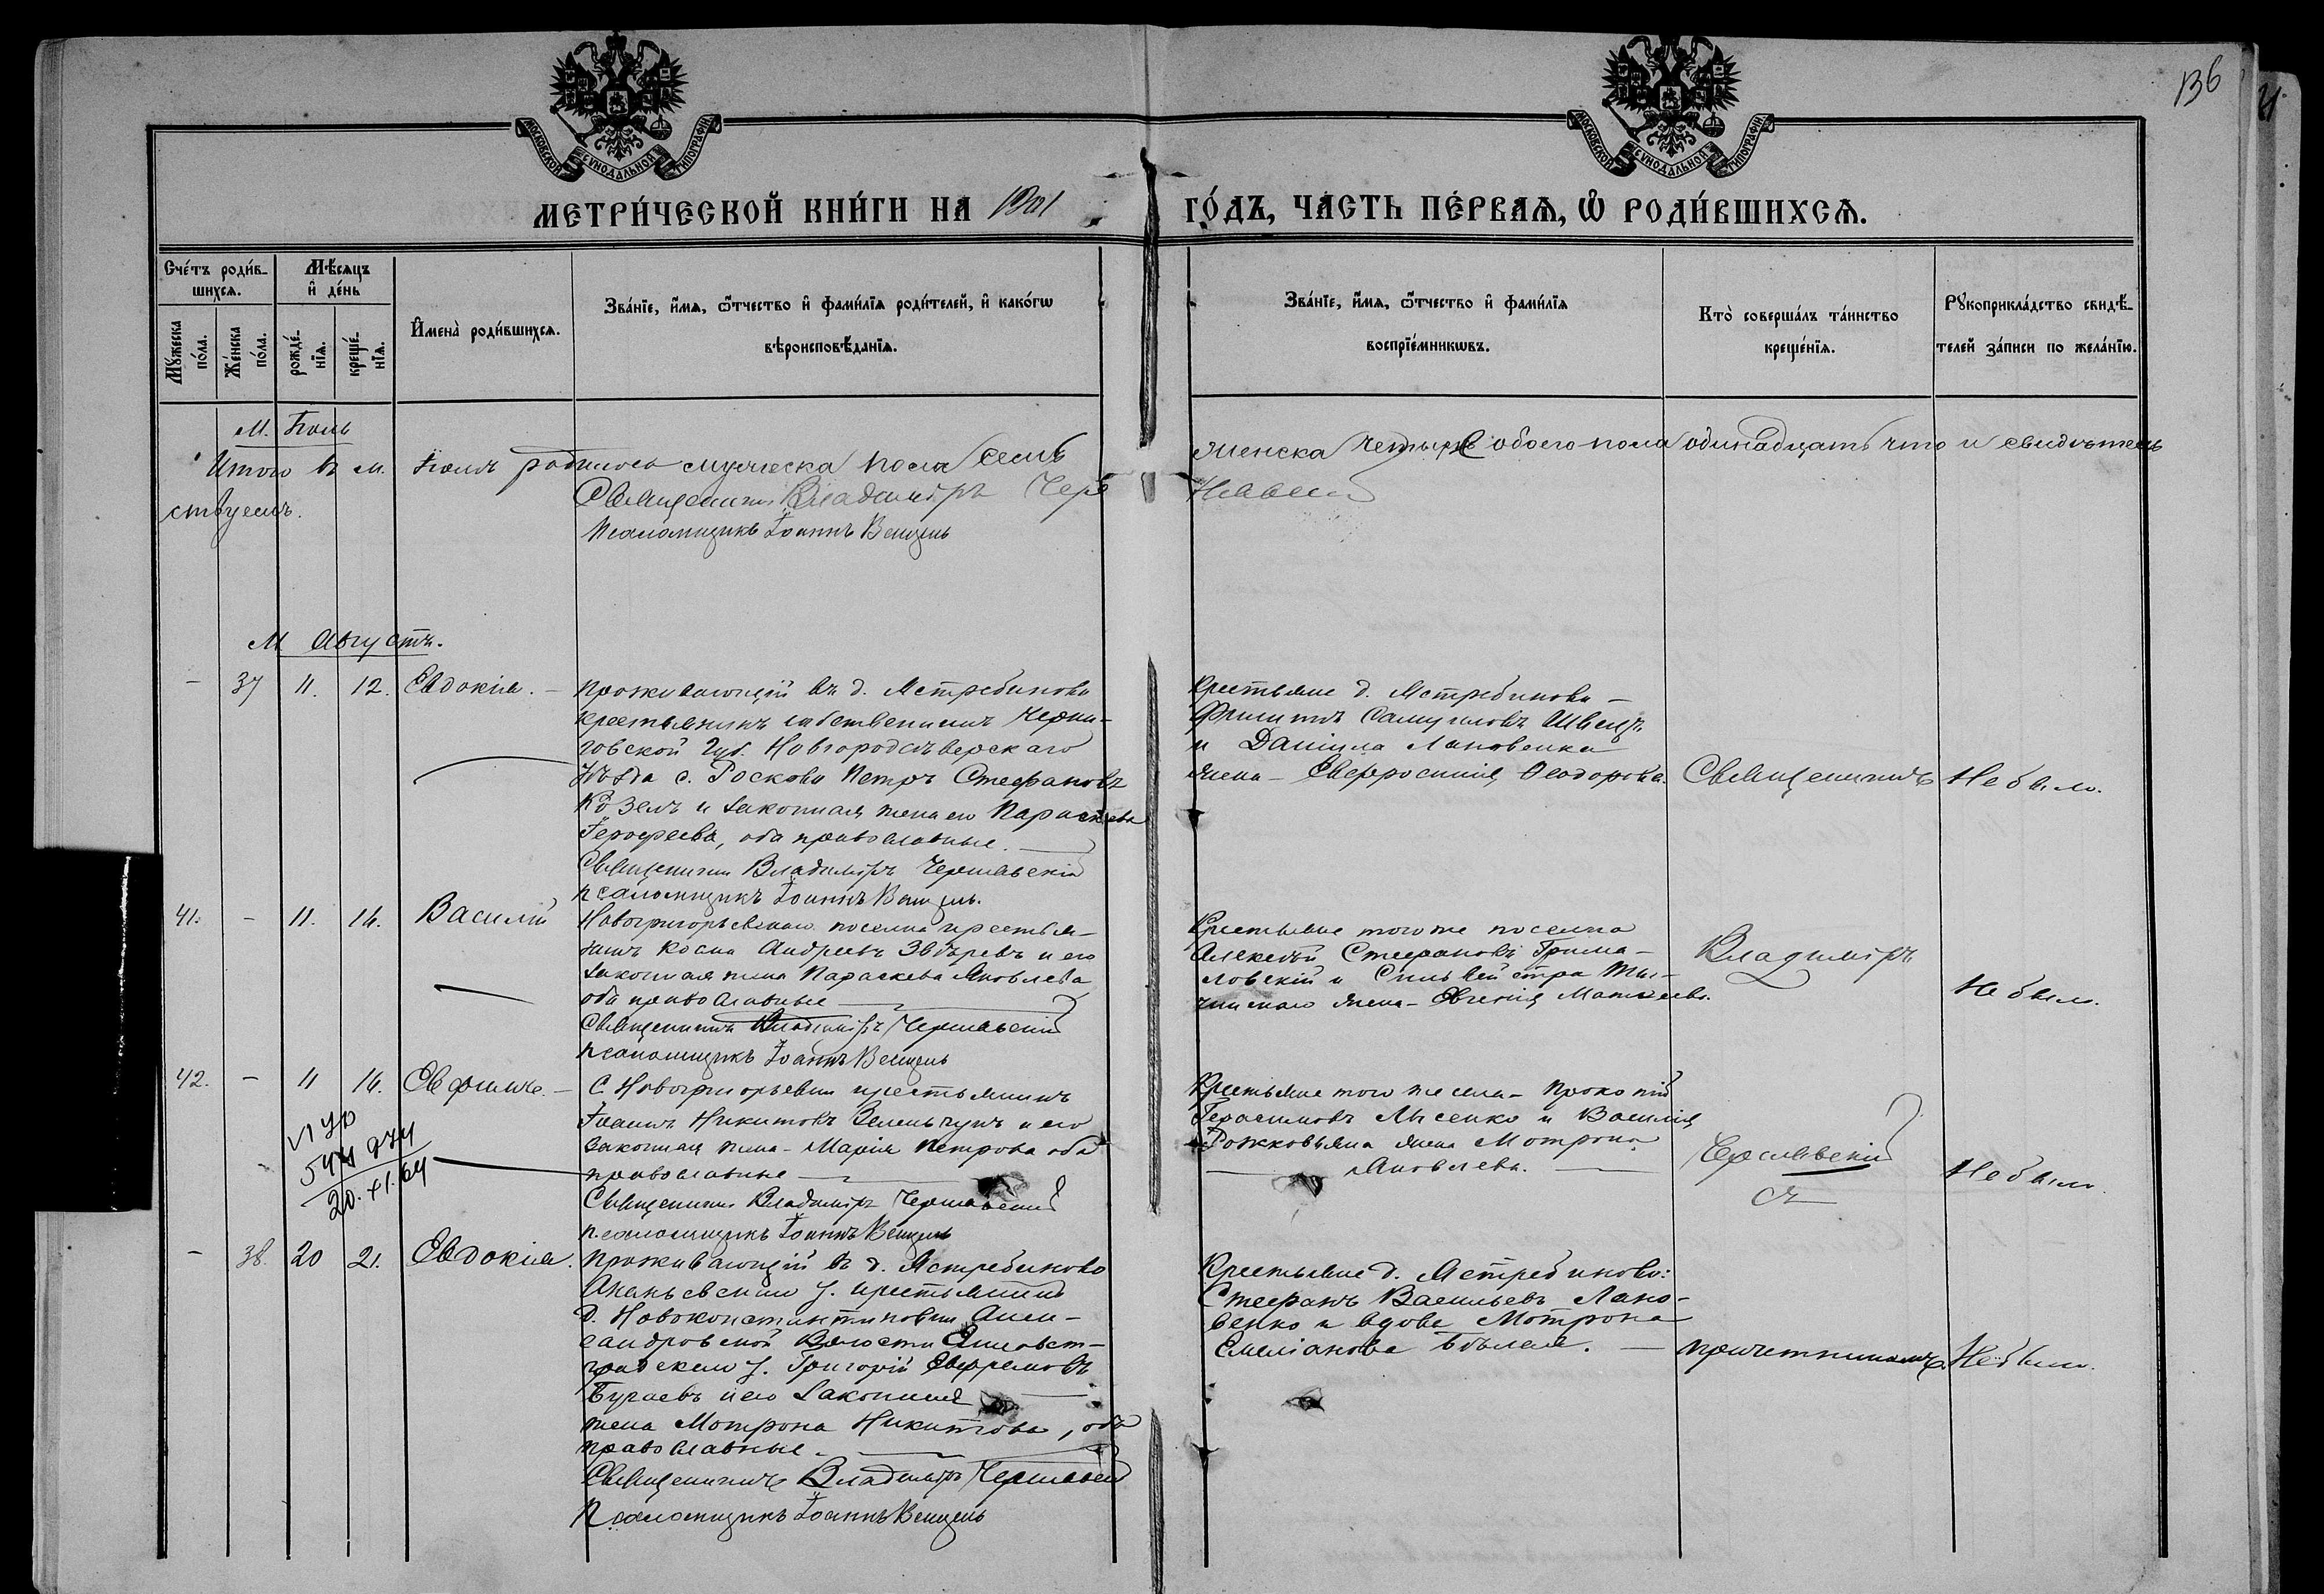 136
МОСКОВСКОЙ СѴНОДАЛЬНОЙ ТИПОГРАФІИ
МОСКОВСКОЙ СѴНОДАЛЬНОЙ ТИПОГРАФІИ
МЕТРИ́ЧЕСКОЙ КНИ́ГИ НА 1901 ГО́ДЪ, ЧА́СТЬ ПЕ́РВАѦ, Ѡ РОДИ́ВШИХСѦ.
Сче́тъ роди́в-
шихсѧ.
Мѣ́сѧцъ
и де́нь
Мꙋ́жеска
по́ла.
Же́нска
по́ла.
рожде́-
нїѧ.
креще́-
нїѧ.
Имена̀ роди́вшихсѧ.
Зва́нїе, и́мѧ, ѻ́тчество и фами́лїѧ роди́телей, и како́гѡ
вѣроисповѣ́данїѧ.
Зва́нїе, и́мѧ, ѻ́тчество и фами́лїѧ
воспрїе́мникѡвъ.
Кто̀ соверша́лъ та́инство
креще́нїѧ.
Рꙋкоприкла́дство свидѣ́-
телей за́писи по жела́нїю.
М. Іюль
Итого въ м. Іюлѣ родилось мужеска пола семь женска четыре обоего пола одинадцать что и свидѣтель
ствуемъ.
Священникъ Владиміръ Чернявскій
Псаломщикъ Іоаннъ Венцель
М Августъ.
- 37 11. 12. Евдокія. -
Проживающій въ д. Ястребиново
крестьянинъ собственникъ Черни-
говской Губ. Новгородсѣверскаго
уѣзда с. Роскова Петръ Стефановъ
Козелъ и законная жена его Параскева
Герофеева, оба православные.
Священникъ Владиміръ Чернявскій
псаломщикъ Іоаннъ Венцель.
Крестьяне д. Ястребиново -
Филиппъ Самуиловъ Швецъ
и Даніила Лановенка
жена - Евфросинія Ѳеодорова.
Священникъ
Не было.
41. - 11. 14. Василій
Новогригорьевскаго поселка крестья-
нинъ Косма Андреевъ Звѣревъ и его
законная жена Параскева Яковлева
оба православные
Священникъ Владиміръ Чернявскій
псаломщикъ Іоаннъ Венцель
Крестьяне того же поселка
Алексѣй Стефановъ Грима-
ловскій и Сильвестра
жена - Евгенія Матѳеева.
Владиміръ
Не было.
42. - 11 14. Евфимій. -
С. Новогригорьевки крестьянинъ
Іоаннъ Никитовъ Зеленчукъ и его
законная жена - Марія Петрова оба
православные
Священникъ Владиміръ Чернявскій
псаломщикъ Іоаннъ Венцель
Крестьяне того же села - Прокопій
Герасимовъ Лысенко и Василія
жена Мотрона
Яковлева.
Чернявскій
съ
Не было.
20.XI.64
- 38. 20 21. Евдокія.
Проживающій въ д. Ястребиново
Ананьевскаго у. крестьянинъ
д. Новоконстантиновки Алек-
сандровской Волости Елисавет-
градскаго у. Григорій Евфремовъ
Бугаевъ и его законная
жена Мотрона Никитова, оба
православные.
Священникъ Владиміръ Чернявскій
Псаломщикъ Іоаннъ Венцель
Крестьяне д. Ястребиново:
Стефанъ Васильевъ Лано-
венко и вдова Мотрона
Емеліанова Бѣлая.
причетникомъ.
Не было.